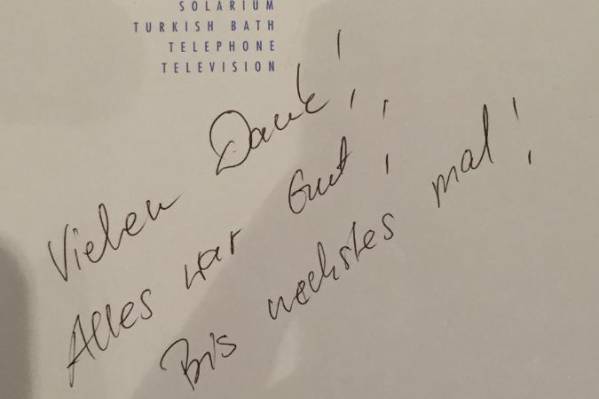 SOLARIUM
TURKISH BATH
TELEPHONE
TELEVISION
Vielen Dank!
Alles war Gut!
Bis nechstes mal!